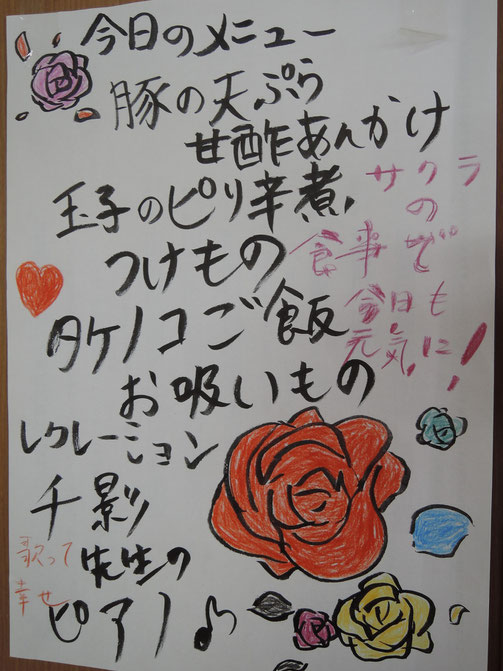 今日のメニュー
豚の天ぷら
甘酢あんかけ
玉子のピリ辛煮
つけもの
タケノコご飯
お吸いもの
サクラ
の
食事で
今日も
元気に!
レクレーション
千影
先生の
ピアノ♪
歌って
幸せ